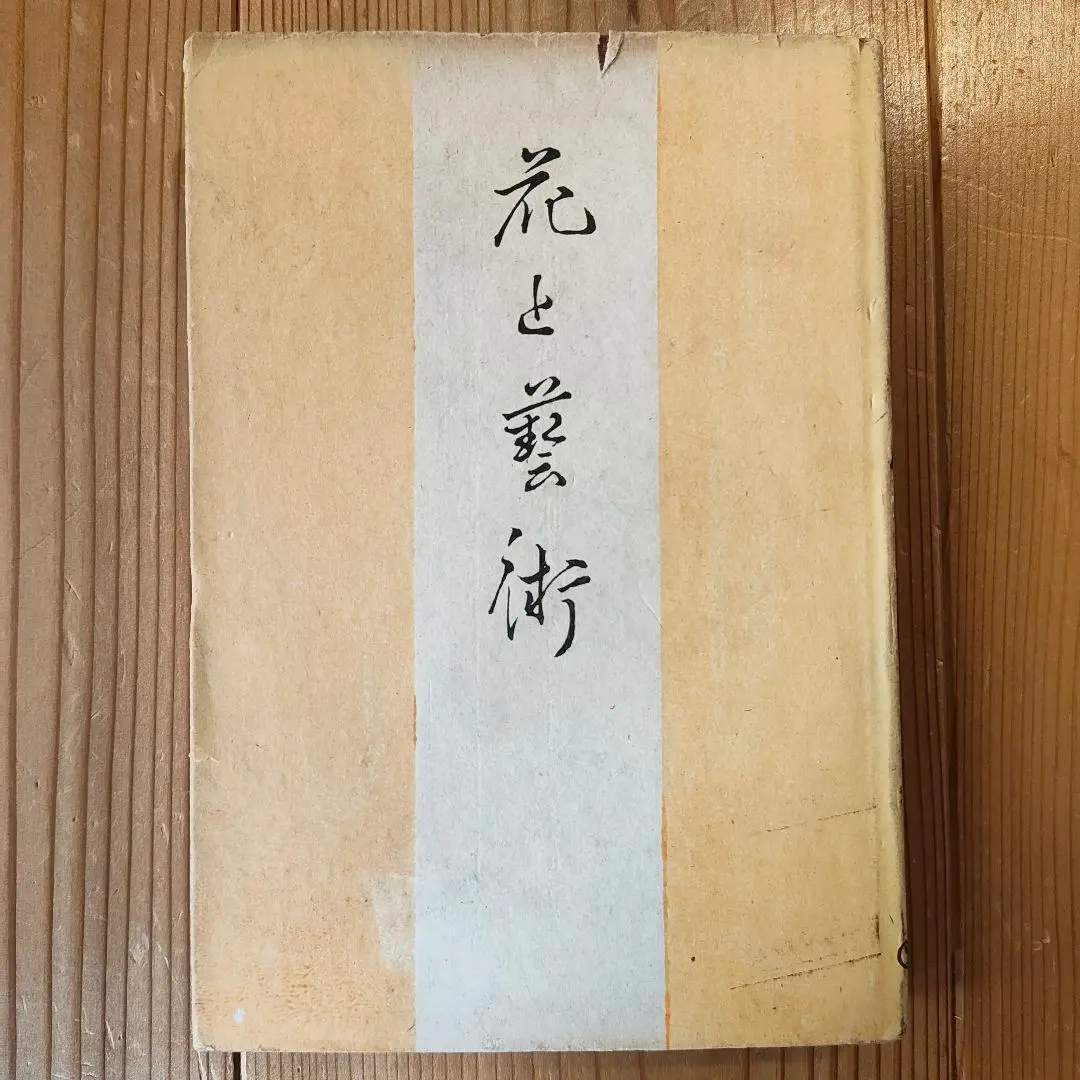 花と藝術